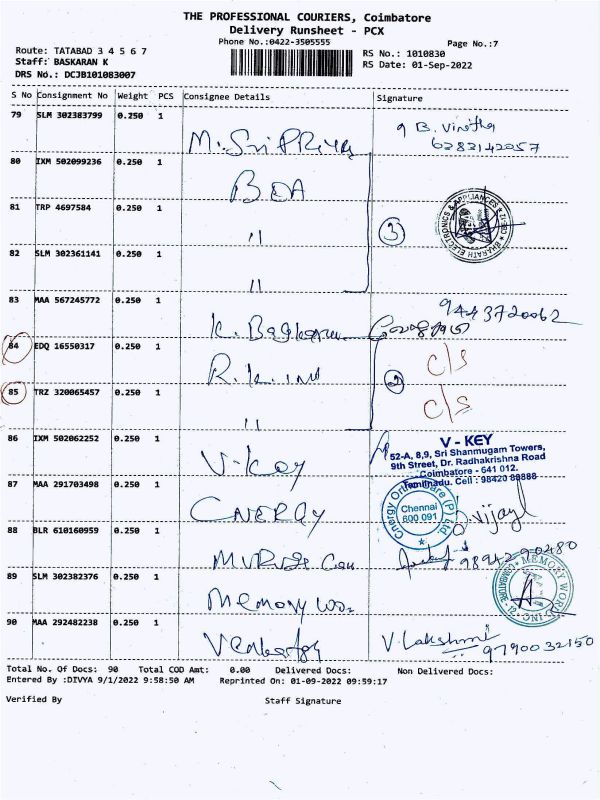 THE PROFESSIONAL COURIERS, Coimbatore
Delivery Runsheet - PCX
Phone No.:0422-3505555
Page No.:7
Route: TATABAD 3 4 5 6 7
RS No.: 1010830
Staff: BASKARAN K
RS Date: 01-Sep-2022
DRS No.: DCJB101083007
S No Consignment No Weight PCS Consignee Details Signature
79 SLM 302383799 0.250 1 M. Sri Priya 9 B. Vinitha
6383142057
80 IXM 502099236 0.250 1 BEA
81 TRP 4697584 0.250 1 " 3
BHARATH ELECTRONICS & APPLIANCES
82 SLM 302361141 0.250 1 "
83 MAA 567245772 0.250 1 K. Baskaran 9443720062
84 EDQ 16550317 0.250 1 R.K. c/s
85 TRZ 320065457 0.250 1 " 2 c/s
86 IXM 502062252 0.250 1 V-Key
V - KEY
52-A, 8,9, Sri Shanmugam Towers,
9th Street, Dr. Radhakrishna Road
Coimbatore - 641 012.
Tamilnadu. Cell : 98420 88888
87 MAA 291703498 0.250 1 ENERGY
Chennai
600 091
Vijay
88 BLR 610160959 0.250 1
89 SLM 302382376 0.250 1 Memory
MEMORY WORLD
90 MAA 292482238 0.250 1 V. Lakshmi
9790032150
Total No. Of Docs: 90 Total COD Amt: 0.00 Delivered Docs: Non Delivered Docs:
Entered By :DIVYA 9/1/2022 9:58:50 AM Reprinted On: 01-09-2022 09:59:17
Verified By Staff Signature